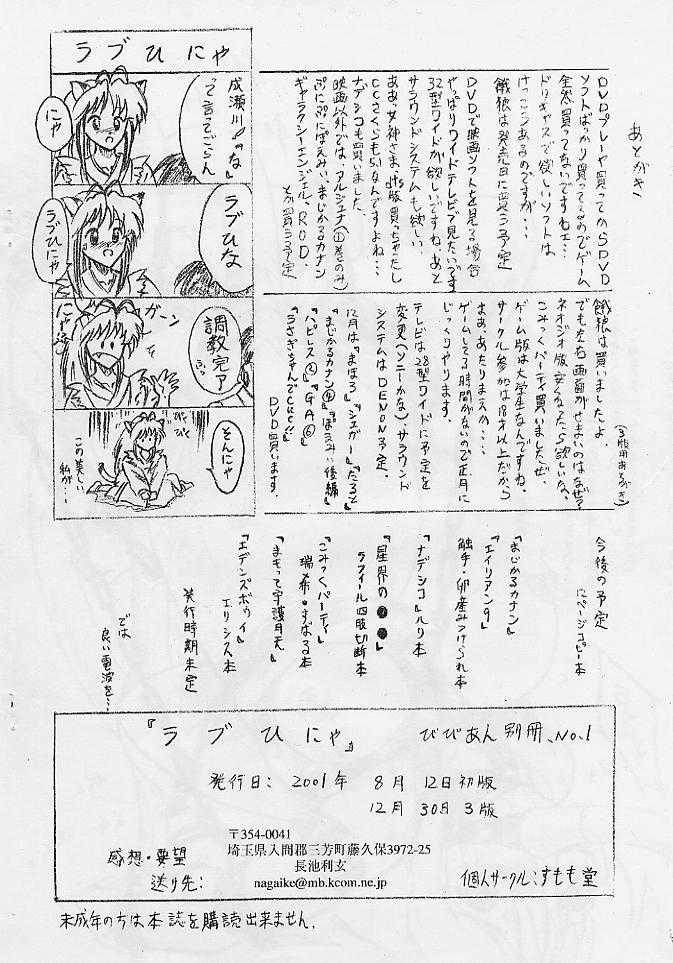 ラブひにゃ
成瀬川「な」
って言ってごらん
にゃ
ラブひな
ラブひにゃ
ガーン
調教完了
ふっ
にゃ
そんにゃ
びく
びく
この美しい
私が…
あとがき
DVDプレーヤ買ってからSDVD
ソフトばっかり買ってるのでゲーム
全然買ってないですねェ…
ドリキャスで欲しいソフトは
けっこうあるのですが…
餓狼は発売日に買う予定
DVDで映画ソフトを見る場合
やっぱりワイドテレビで見たいです
32型ワイドが欲しいですね、あと
サラウンドシステムも欲しい
ああっ女神さまdts版買っちゃったし
CCさくらも5.1なんですよね…
ナデシコも買いました
映画以外では、アルジェナ(①巻のみ)
ぷにぷにぽえみぃ、まじかるカナン
ギャラクシーエンジェル、ROD、
とか買う予定
(3版用あとがき)
餓狼は買いましたよ。
でも左右画面がせまいのはなぜ?
ネオジオ版安くなったら欲しいな。
こみっくパーティ買いましたぜ、
ゲーム版は大学生なんですね。
サークル参加は18才以上だから
まあ、あたりまえか…
ゲームしてる時間がないので正月に
じっくりやります。
テレビは28型ワイドに予定を
変更(ソニーかな)、サラウンド
システムはDENON予定、
12月は『まほろ』『シュガー』『たると』
『まじかるカナン④』『ぽえみぃ後編』
『ハピレス②』『GA⑥』
『うさぎちゃんでCue!!』
DVD買います。
今後の予定
にページコピー本
『まじかるカナン』
『エイリアン9』
触手・卵産みつけられ本
『ナデシコ』ルリ本
『星界の●●』
ラフィール四肢切断本
『こみっくパーティ』
瑞希・すばる本
『まもって守護月天』
『エデンズボゥイ』
エリシス本
発行時期未定
では
良い電波を…
『ラブひにゃ』 びびあん別冊、No.1
発行日: 2001年 8月 12日初版
12月 30日 3版
〒354-0041
埼玉県入間郡三芳町藤久保3972-25
長池利玄
nagaike@mb.kcom.ne.jp
感想・要望
送り先:
個人サークル:すもも堂
未成年の方は本誌を購読出来ません.